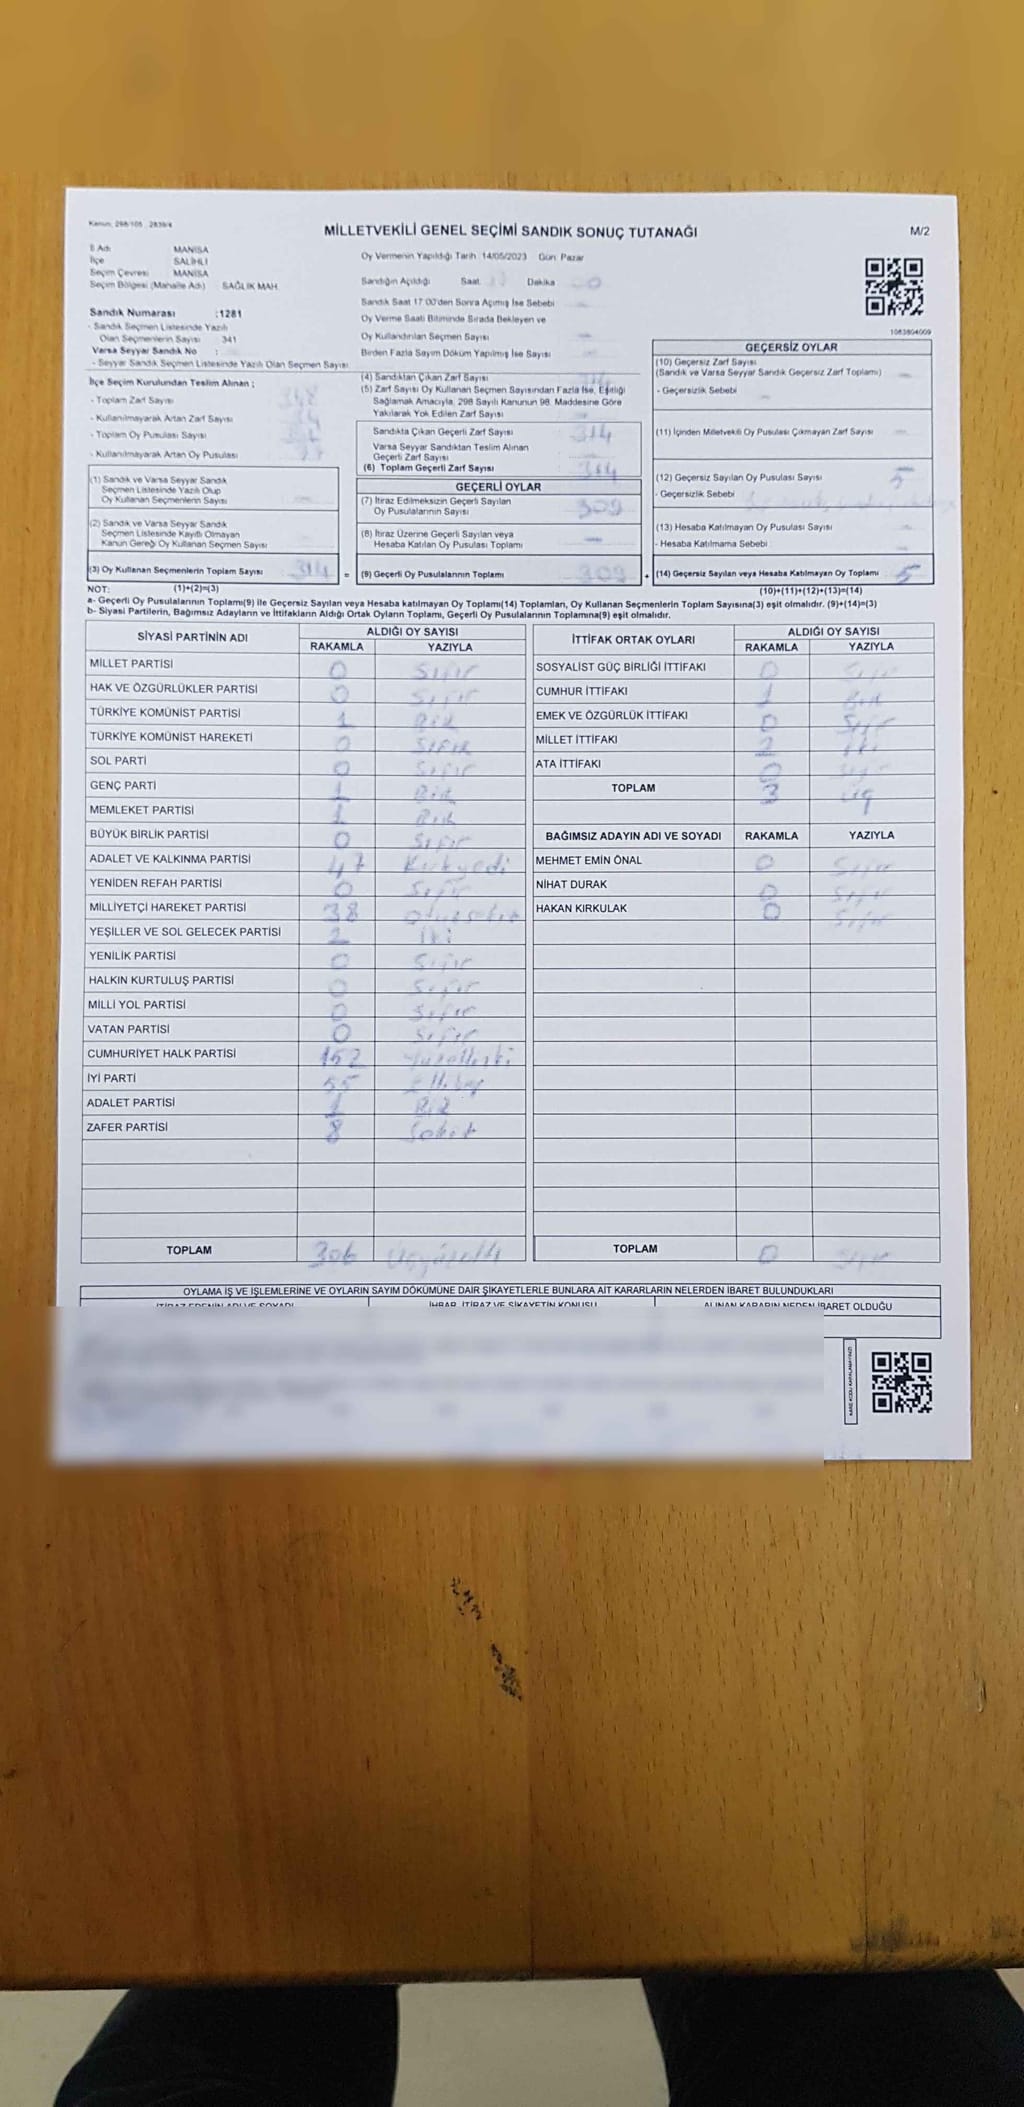 Kanun: 298/105 , 2839/4
MİLLETVEKİLİ GENEL SEÇİMİ SANDIK SONUÇ TUTANAĞI
M/2
İl Adı MANİSA
İlçe SALİHLİ
Seçim Çevresi MANİSA
Seçim Bölgesi (Mahalle Adı) SAĞLIK MAH.
Sandık Numarası :1281
- Sandık Seçmen Listesinde Yazılı
Olan Seçmenlerin Sayısı 341
Varsa Seyyar Sandık No :
- Seyyar Sandık Seçmen Listesinde Yazılı Olan Seçmen Sayısı
İlçe Seçim Kurulundan Teslim Alınan ;
- Toplam Zarf Sayısı
- Kullanılmayarak Artan Zarf Sayısı
- Toplam Oy Pusulası Sayısı
- Kullanılmayarak Artan Oy Pusulası
(1) Sandık ve Varsa Seyyar Sandık
Seçmen Listesinde Yazılı Olup
Oy Kullanan Seçmenlerin Sayısı
(2) Sandık ve Varsa Seyyar Sandık
Seçmen Listesinde Kayıtlı Olmayan
Kanun Gereği Oy Kullanan Seçmen Sayısı
(3) Oy Kullanan Seçmenlerin Toplam Sayısı 314 =
Oy Vermenin Yapıldığı Tarih 14/05/2023 Gün Pazar
Sandığın Açıldığı Saat Dakika
Sandık Saat 17.00'den Sonra Açılmış İse Sebebi
Oy Verme Saati Bitiminde Sırada Bekleyen ve
Oy Kullandırılan Seçmen Sayısı
Birden Fazla Sayım Döküm Yapılmış İse Sayısı
(4) Sandıktan Çıkan Zarf Sayısı 314
(5) Zarf Sayısı Oy Kullanan Seçmen Sayısından Fazla İse, Eşitliği
Sağlamak Amacıyla, 298 Sayılı Kanunun 98. Maddesine Göre
Yakılarak Yok Edilen Zarf Sayısı
Sandıkta Çıkan Geçerli Zarf Sayısı 314
Varsa Seyyar Sandıktan Teslim Alınan
Geçerli Zarf Sayısı
(6) Toplam Geçerli Zarf Sayısı 314
GEÇERLİ OYLAR
(7) İtiraz Edilmeksizin Geçerli Sayılan
Oy Pusulalarının Sayısı 309
(8) İtiraz Üzerine Geçerli Sayılan veya
Hesaba Katılan Oy Pusulası Toplamı
(9) Geçerli Oy Pusulalarının Toplamı 309 +
1083804009
GEÇERSİZ OYLAR
(10) Geçersiz Zarf Sayısı
(Sandık ve Varsa Seyyar Sandık Geçersiz Zarf Toplamı)
- Geçersizlik Sebebi
(11) İçinden Milletvekili Oy Pusulası Çıkmayan Zarf Sayısı
(12) Geçersiz Sayılan Oy Pusulası Sayısı 5
- Geçersizlik Sebebi
(13) Hesaba Katılmayan Oy Pusulası Sayısı
- Hesaba Katılmama Sebebi
(14) Geçersiz Sayılan veya Hesaba Katılmayan Oy Toplamı 5
NOT: (1)+(2)=(3) (10)+(11)+(12)+(13)=(14)
a- Geçerli Oy Pusulalarının Toplamı(9) ile Geçersiz Sayılan veya Hesaba katılmayan Oy Toplamı(14) Toplamları, Oy Kullanan Seçmenlerin Toplam Sayısına(3) eşit olmalıdır. (9)+(14)=(3)
b- Siyasi Partilerin, Bağımsız Adayların ve İttifakların Aldığı Ortak Oyların Toplamı, Geçerli Oy Pusulalarının Toplamına(9) eşit olmalıdır.
SİYASİ PARTİNİN ADI ALDIĞI OY SAYISI
RAKAMLA YAZIYLA
MİLLET PARTİSİ 0 Sıfır
HAK VE ÖZGÜRLÜKLER PARTİSİ 0 Sıfır
TÜRKİYE KOMÜNİST PARTİSİ 1 Bir
TÜRKİYE KOMÜNİST HAREKETİ 0 Sıfır
SOL PARTİ 0 Sıfır
GENÇ PARTİ 1 Bir
MEMLEKET PARTİSİ 1 Bir
BÜYÜK BİRLİK PARTİSİ 0 Sıfır
ADALET VE KALKINMA PARTİSİ 47 Kırkyedi
YENİDEN REFAH PARTİSİ 0 Sıfır
MİLLİYETÇİ HAREKET PARTİSİ 38 Otuzsekiz
YEŞİLLER VE SOL GELECEK PARTİSİ 2 İki
YENİLİK PARTİSİ 0 Sıfır
HALKIN KURTULUŞ PARTİSİ 0 Sıfır
MİLLİ YOL PARTİSİ 0 Sıfır
VATAN PARTİSİ 0 Sıfır
CUMHURİYET HALK PARTİSİ 152 Yüzelliiki
İYİ PARTİ 55 Ellibeş
ADALET PARTİSİ 1 Bir
ZAFER PARTİSİ 8 Sekiz
TOPLAM 306 Üçyüzaltı
İTTİFAK ORTAK OYLARI ALDIĞI OY SAYISI
RAKAMLA YAZIYLA
SOSYALİST GÜÇ BİRLİĞİ İTTİFAKI 0 Sıfır
CUMHUR İTTİFAKI 1 Bir
EMEK VE ÖZGÜRLÜK İTTİFAKI 0 Sıfır
MİLLET İTTİFAKI 2 İki
ATA İTTİFAKI 0 Sıfır
TOPLAM 3 Üç
BAĞIMSIZ ADAYIN ADI VE SOYADI RAKAMLA YAZIYLA
MEHMET EMİN ÖNAL 0 Sıfır
NİHAT DURAK 0 Sıfır
HAKAN KIRKULAK 0 Sıfır
TOPLAM 0 Sıfır
OYLAMA İŞ VE İŞLEMLERİNE VE OYLARIN SAYIM DÖKÜMÜNE DAİR ŞİKAYETLERLE BUNLARA AİT KARARLARIN NELERDEN İBARET BULUNDUKLARI
İTİRAZ EDENİN ADI VE SOYADI İHBAR, İTİRAZ VE ŞİKAYETİN KONUSU ALINAN KARARIN NEDEN İBARET OLDUĞU